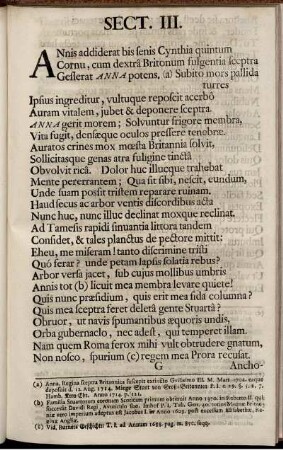 SECT. III.
ANnis addiderat bis senis Cynthia quintum
Cornu, cum dextrâ Britonum fulgentia sceptra
Gesserat ANNA potens, (a) Subito mors pallida
turres
Ipsius ingreditur, vultuque reposcit acerbô
Auram vitalem, jubet & deponere sceptra.
ANNA gerit morem; Solvuntur frigore membra,
Vita fugit, densæque oculos pressere tenebræ.
Auratos crines mox mœsta Britannia solvit,
Sollicitasque genas atra fuligine tinctâ
Obvolvit ricâ. Dolor huc illucque trahebat
Mente pererrantem; Qua sit sibi, nescit, eundum,
Unde suam possit tristem reparare ruinam.
Haud secus ac arbor ventis discordibus acta
Nunc huc, nunc illuc declinat moxque reclinat.
Ad Tamesis rapidi sinuantia littora tandem
Considet, & tales planctus de pectore mittit:
Eheu, me miseram! tanto discrimine tristi
Quô ferar? unde petam lapsis solatia rebus?
Arbor versa jacet, sub cujus mollibus umbris
Annis tot (b) licuit mea membra levare quiete!
Quis nunc præsidium, quis erit mea fida columna?
Quis mea sceptra feret delesâ gente Stuartâ?
Obruor, ut navis spumantibus æquoris undis,
Orba gubernaclo, nec adest, qui temperet illam.
Nam quem Roma ferox mihi vult obtrudere gnatum,
Non nosco, spurium (c) regem mea Prora recusat.
G Ancho-
(a) Anna, Regina sceptra Britannica suscepit mortuo Guilielmo III. M. Mart. 1702.
(c) Vid.